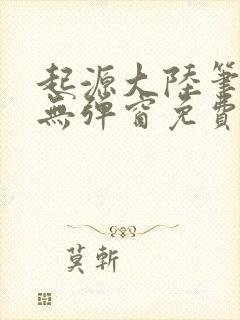 起源大陸筆
無彈窗免費
莫斬